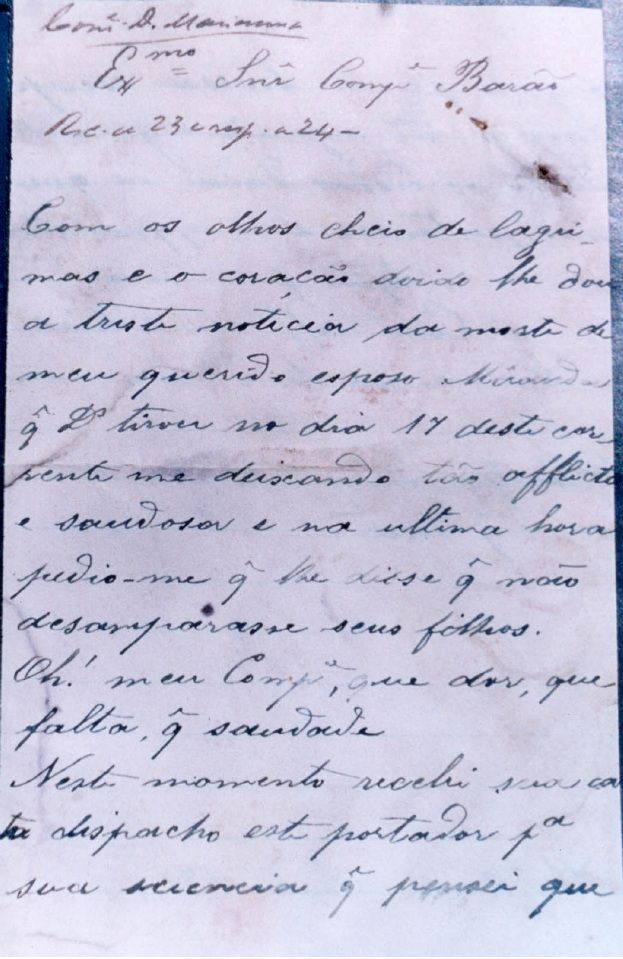 Com.ᵉ D. Marianna
Exᵐᵒ Snr̂ Compᵉ Barão
Rec. a 23 e resp. a 24 –
Com os olhos cheio de lagri-
mas e o coração doido lhe dou
a triste notícia da morte de
meu querido esposo Miranda
q̂ Dˢ tirou no dia 17 deste cor-
rente me deixando tão afflicta
e saudosa e na ultima hora
pedio-me q̂ lhe disse q̂ não
desamparasse seus filhos.
Oh! meu Compᵉ, que dor, que
falta, q̂ saudade
Neste momento recebi sua car
ta dispacho este portador pᵃ
sua sciencia q̂ pensei que